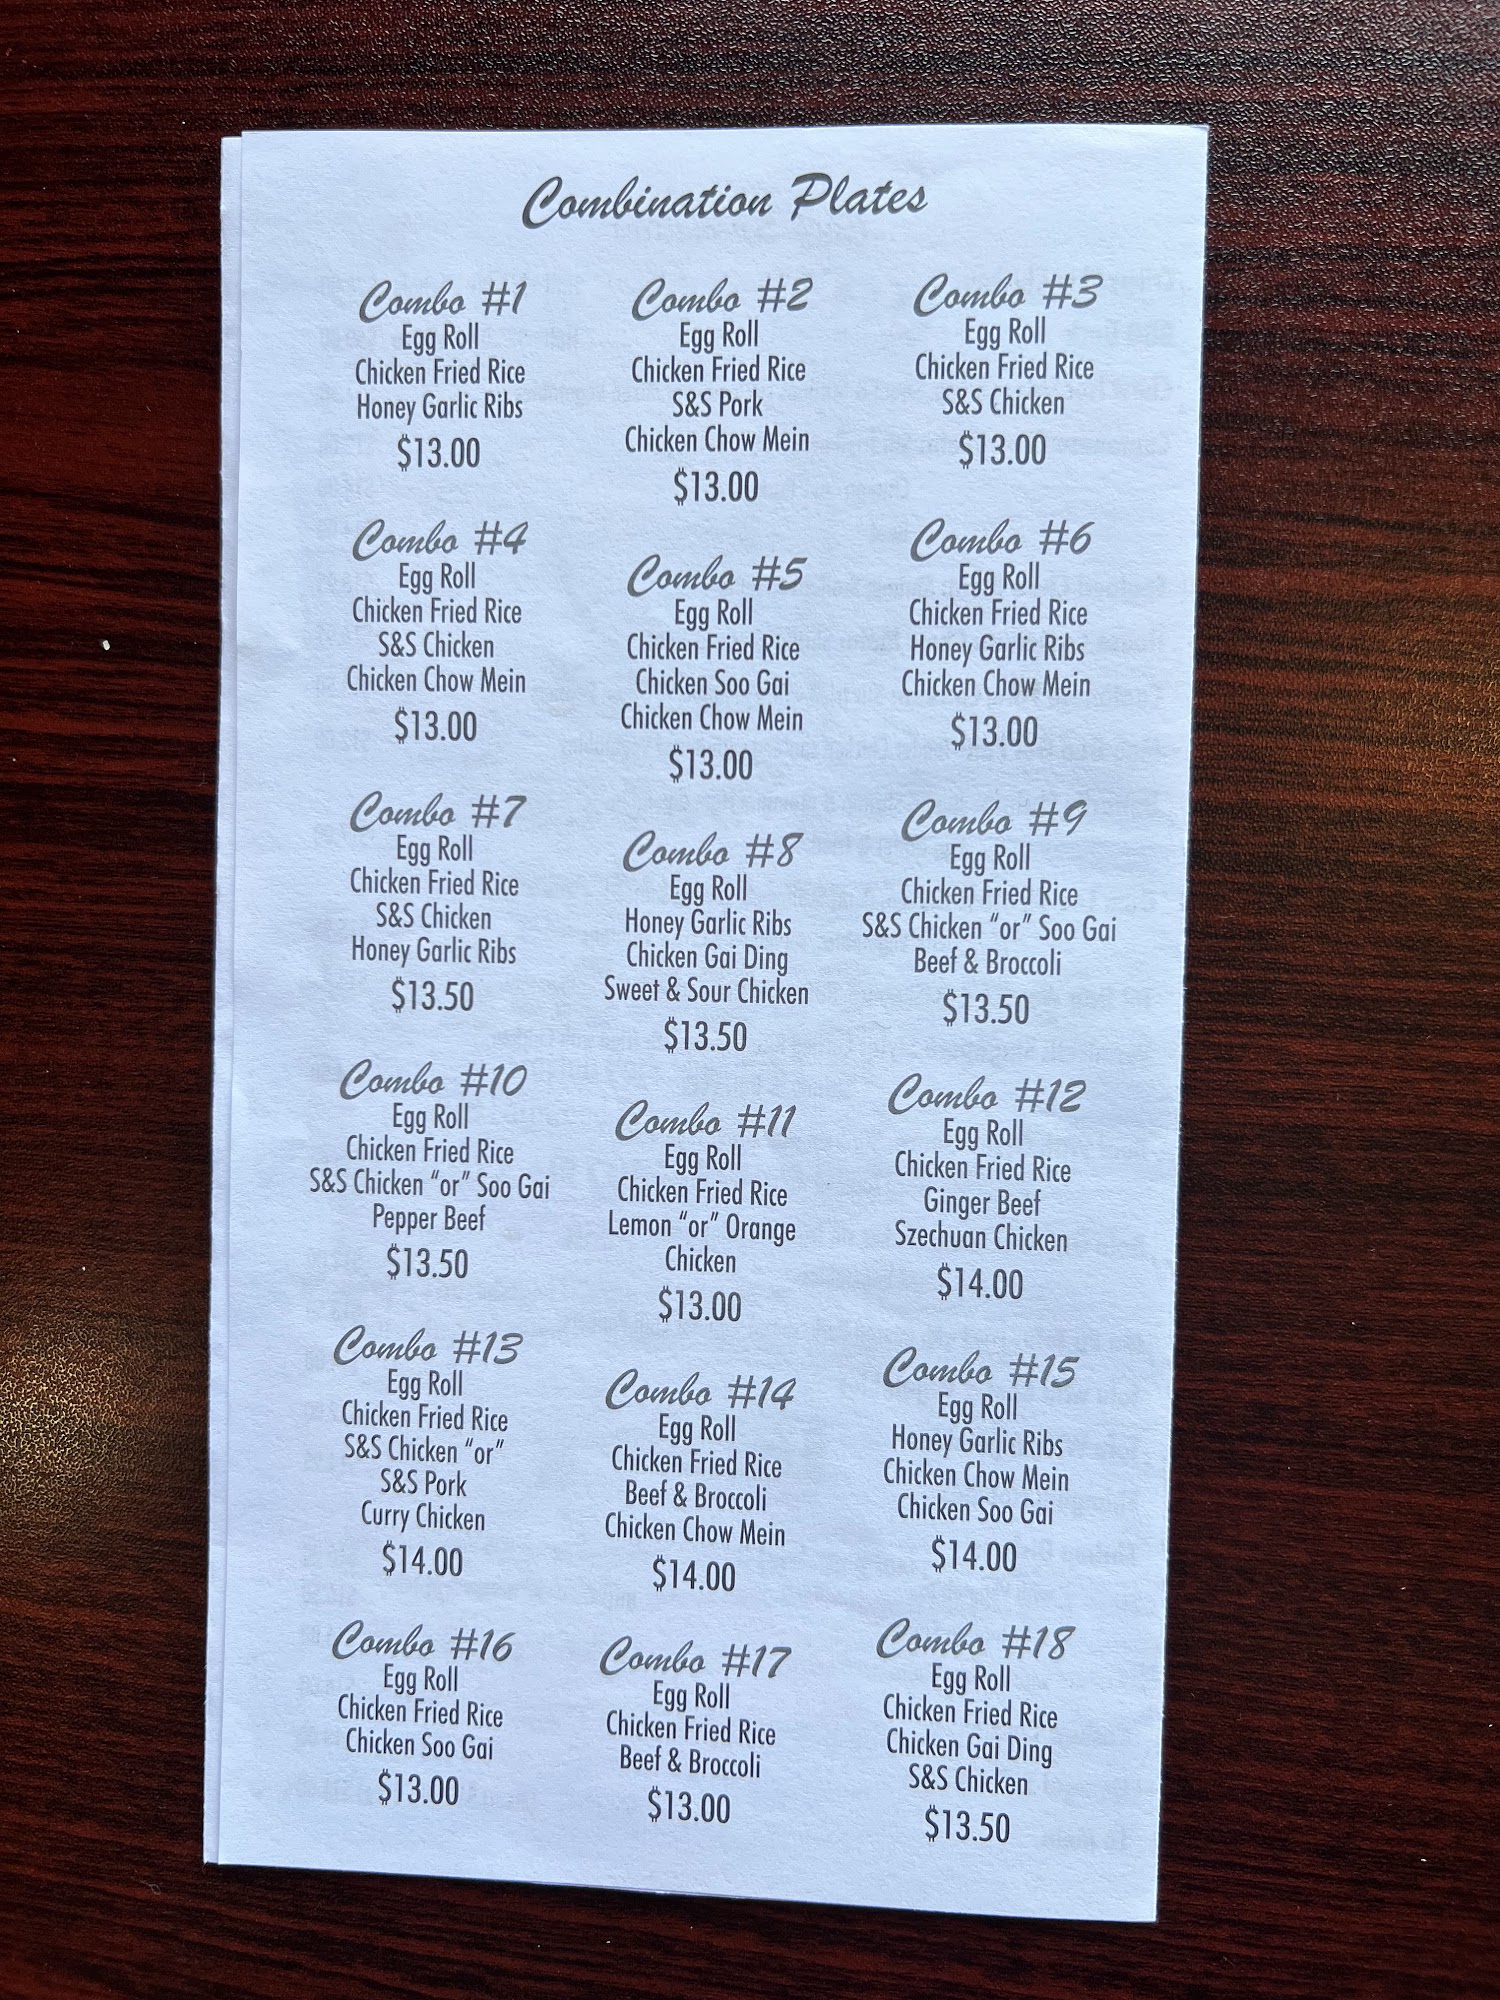 Combination Plates
Combo #1
Egg Roll
Chicken Fried Rice
Honey Garlic Ribs
$13.00
Combo #2
Egg Roll
Chicken Fried Rice
S&S Pork
Chicken Chow Mein
$13.00
Combo #3
Egg Roll
Chicken Fried Rice
S&S Chicken
$13.00
Combo #4
Egg Roll
Chicken Fried Rice
S&S Chicken
Chicken Chow Mein
$13.00
Combo #5
Egg Roll
Chicken Fried Rice
Chicken Soo Gai
Chicken Chow Mein
$13.00
Combo #6
Egg Roll
Chicken Fried Rice
Honey Garlic Ribs
Chicken Chow Mein
$13.00
Combo #7
Egg Roll
Chicken Fried Rice
S&S Chicken
Honey Garlic Ribs
$13.50
Combo #8
Egg Roll
Honey Garlic Ribs
Chicken Gai Ding
Sweet & Sour Chicken
$13.50
Combo #9
Egg Roll
Chicken Fried Rice
S&S Chicken “or” Soo Gai
Beef & Broccoli
$13.50
Combo #10
Egg Roll
Chicken Fried Rice
S&S Chicken “or” Soo Gai
Pepper Beef
$13.50
Combo #11
Egg Roll
Chicken Fried Rice
Lemon “or” Orange
Chicken
$13.00
Combo #12
Egg Roll
Chicken Fried Rice
Ginger Beef
Szechuan Chicken
$14.00
Combo #13
Egg Roll
Chicken Fried Rice
S&S Chicken “or”
S&S Pork
Curry Chicken
$14.00
Combo #14
Egg Roll
Chicken Fried Rice
Beef & Broccoli
Chicken Chow Mein
$14.00
Combo #15
Egg Roll
Honey Garlic Ribs
Chicken Chow Mein
Chicken Soo Gai
$14.00
Combo #16
Egg Roll
Chicken Fried Rice
Chicken Soo Gai
$13.00
Combo #17
Egg Roll
Chicken Fried Rice
Beef & Broccoli
$13.00
Combo #18
Egg Roll
Chicken Fried Rice
Chicken Gai Ding
S&S Chicken
$13.50